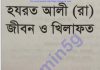 হযরত আলী (রা)
জীবন ও খিলাফত